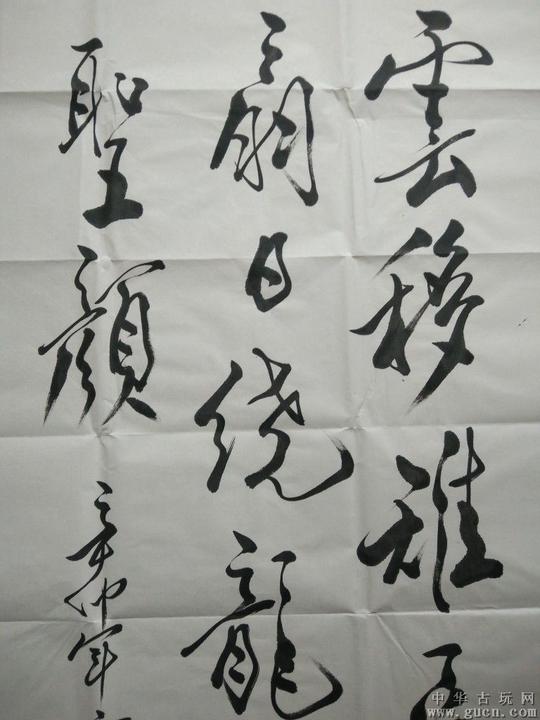 雲移雉
扇日绕龍
聖顔
辛卯年
中华古玩网
www.gucn.com